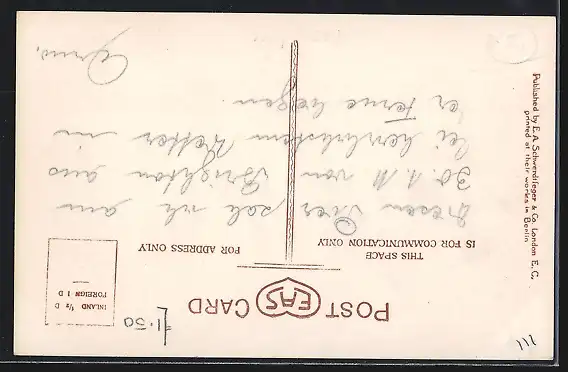 POST CARD
EAS
THIS SPACE
IS FOR COMMUNICATION ONLY
FOR ADDRESS ONLY
INLAND ½ D
FOREIGN 1 D
Diesen Pier sah ich am
30. 1. 11 von Brighton aus
bei herrlichstem Wetter in
der Ferne liegen
Published by E. A. Schwerdtfeger & Co. London E. C.
printed at their works in Berlin
£1.50